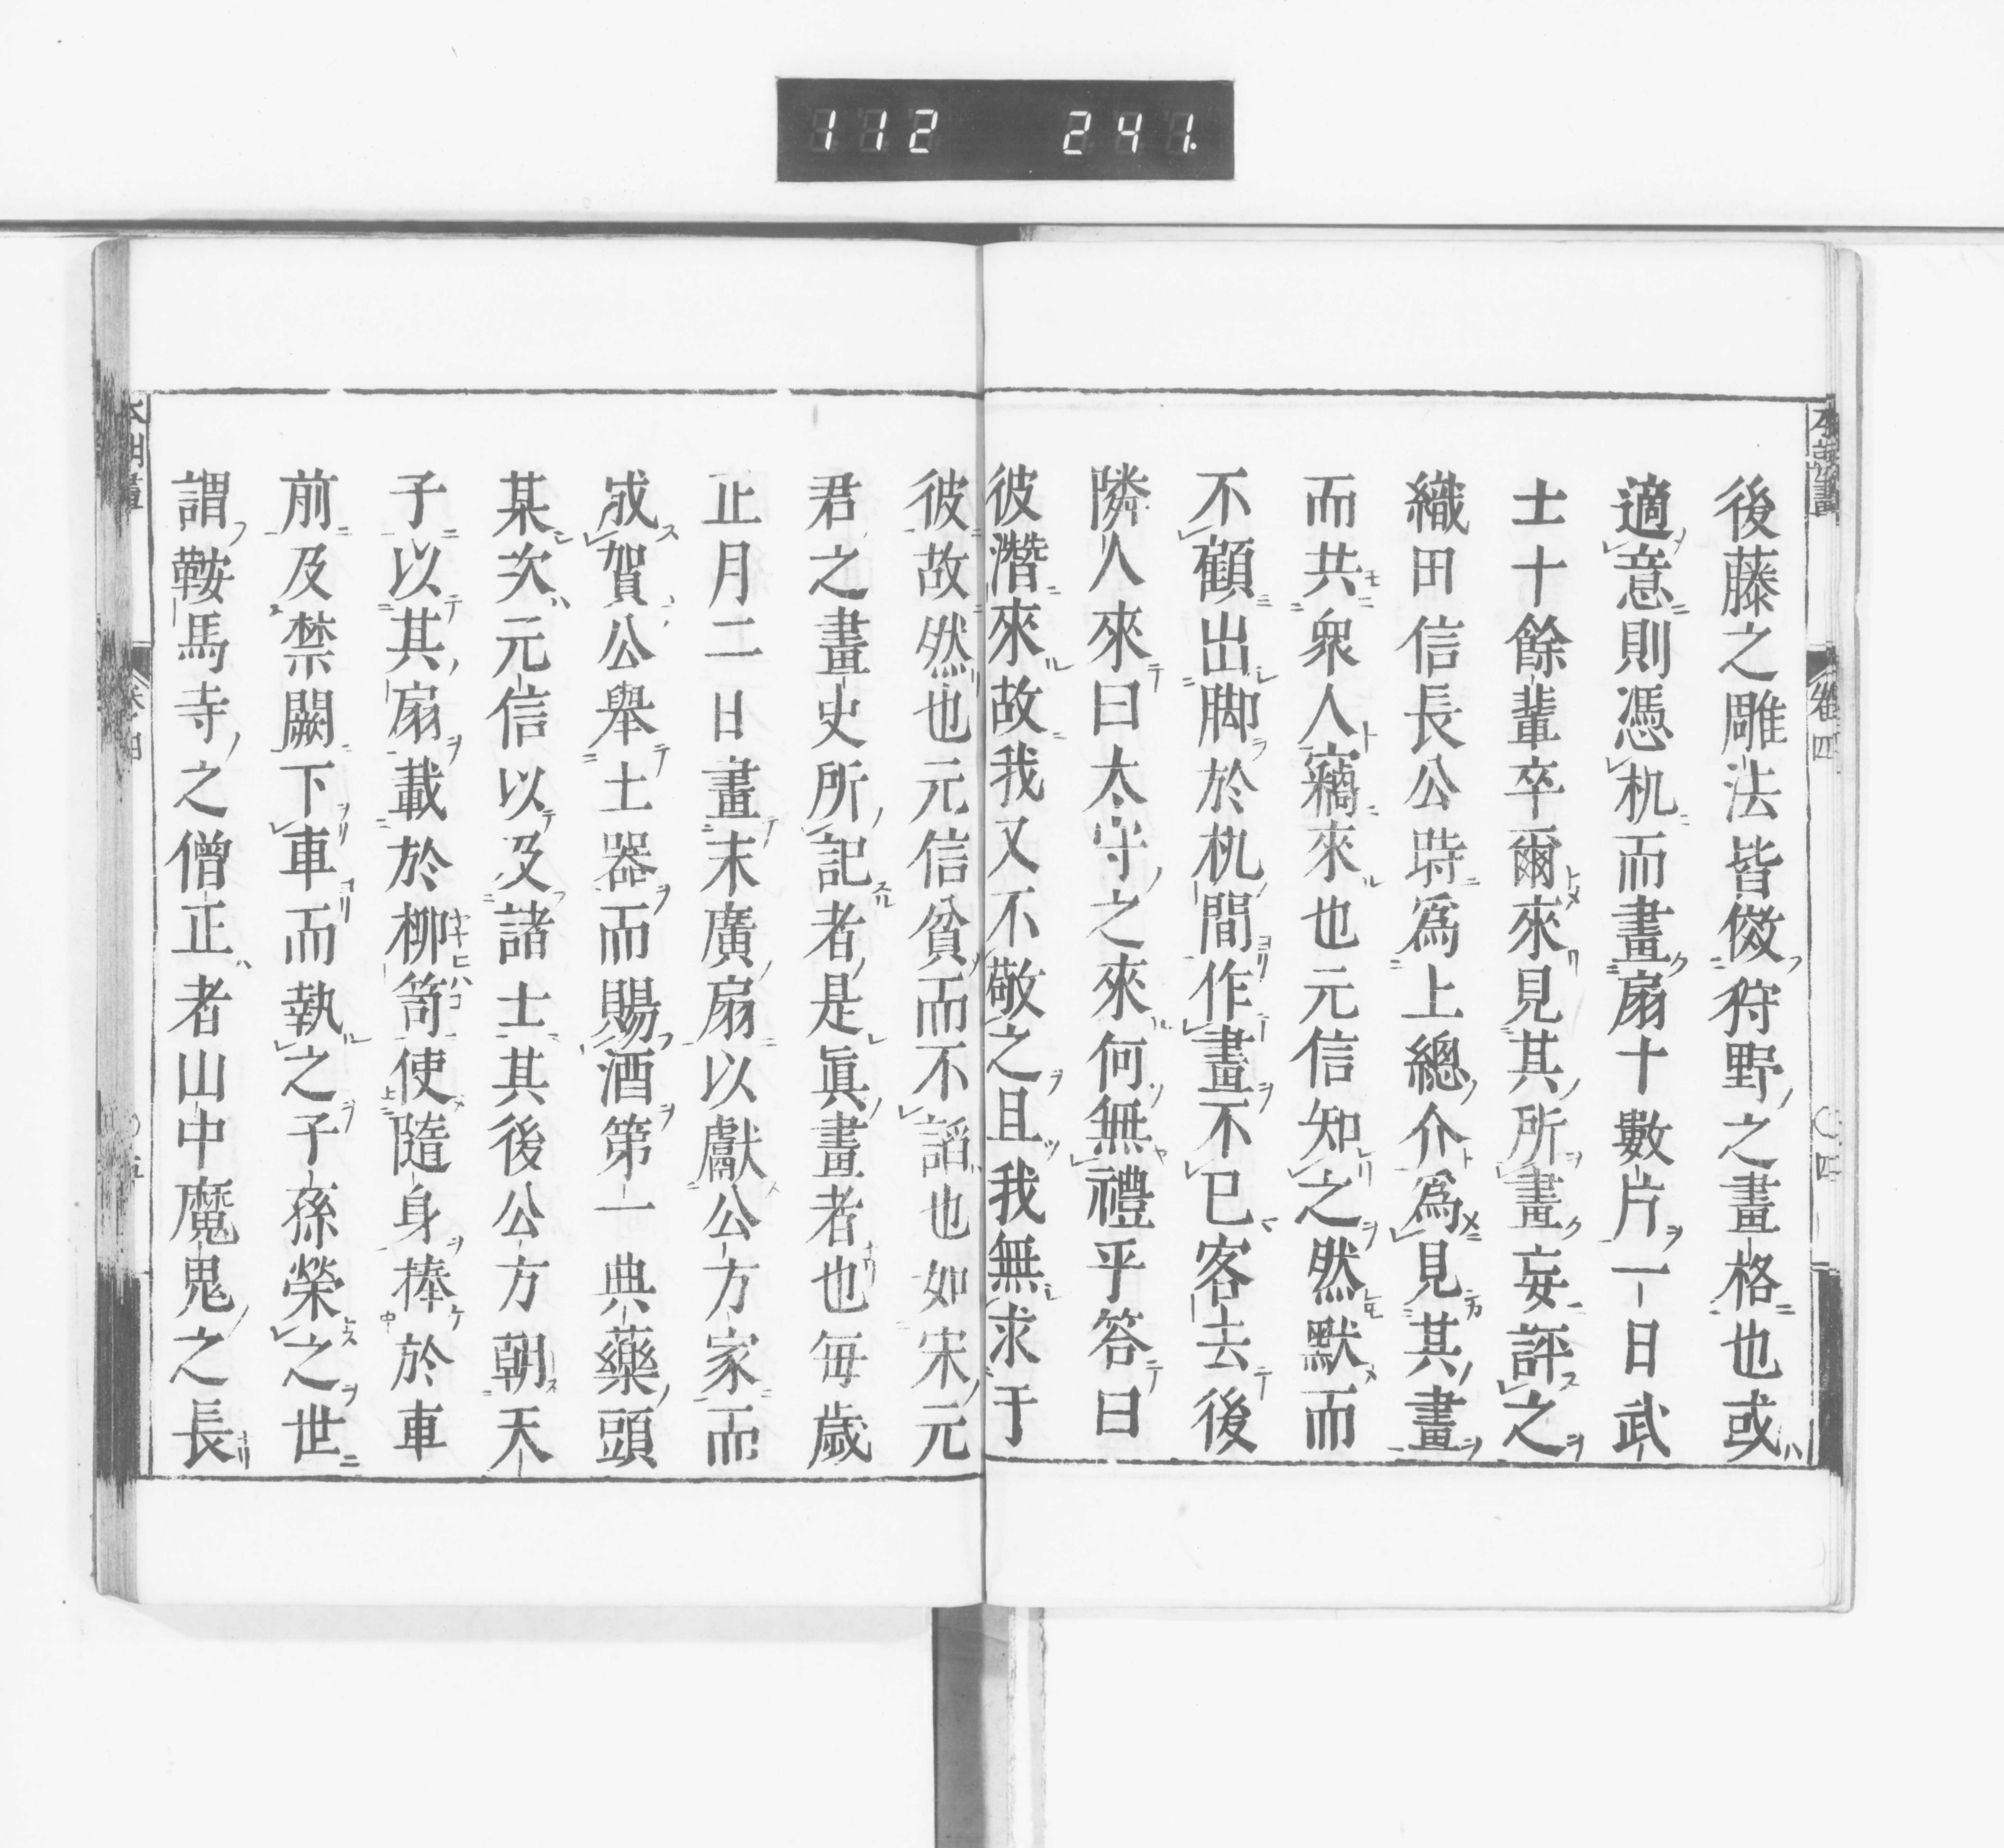 112 241.
後藤之雕法皆傚狩野之畫格也或
適意則憑机而畫扇十數片一日武
士十餘輩卒爾來見其所畫妄評之
織田信長公時爲上總介爲見其畫
而共衆人竊來也元信知之然默而
不顧出脚於机間作畫不已客去後
隣人來曰太守之來何無禮乎答曰
彼潛來故我又不敬之且我無求于
彼故然也元信貧而不謟也如宋元
君之畫史所記者是眞畫者也每歲
正月二日畫末廣扇以獻公方家而
成賀公舉土器而賜酒第一典藥頭
某次元信以及諸士其後公方朝天
子以其扇載於柳笥使隨身捧於車
前及禁闕下車而執之子孫榮之世
謂鞍馬寺之僧正者山中魔鬼之長
卷四
四